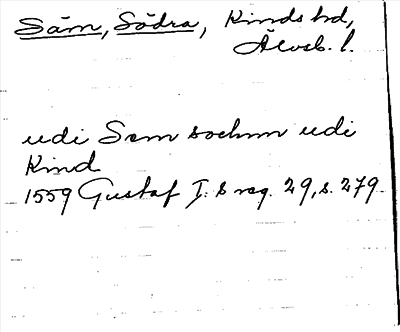 Säm, Södra, Kinds hd,
Älvsb. l.
udi Sem sochnn udi
Kind
1559 Gustaf I:s reg. 29, s. 279.